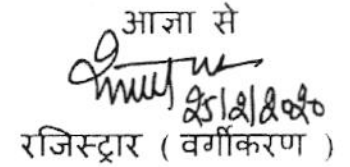 आज्ञा से
25/2/2020
रजिस्ट्रार ( वर्गीकरण )